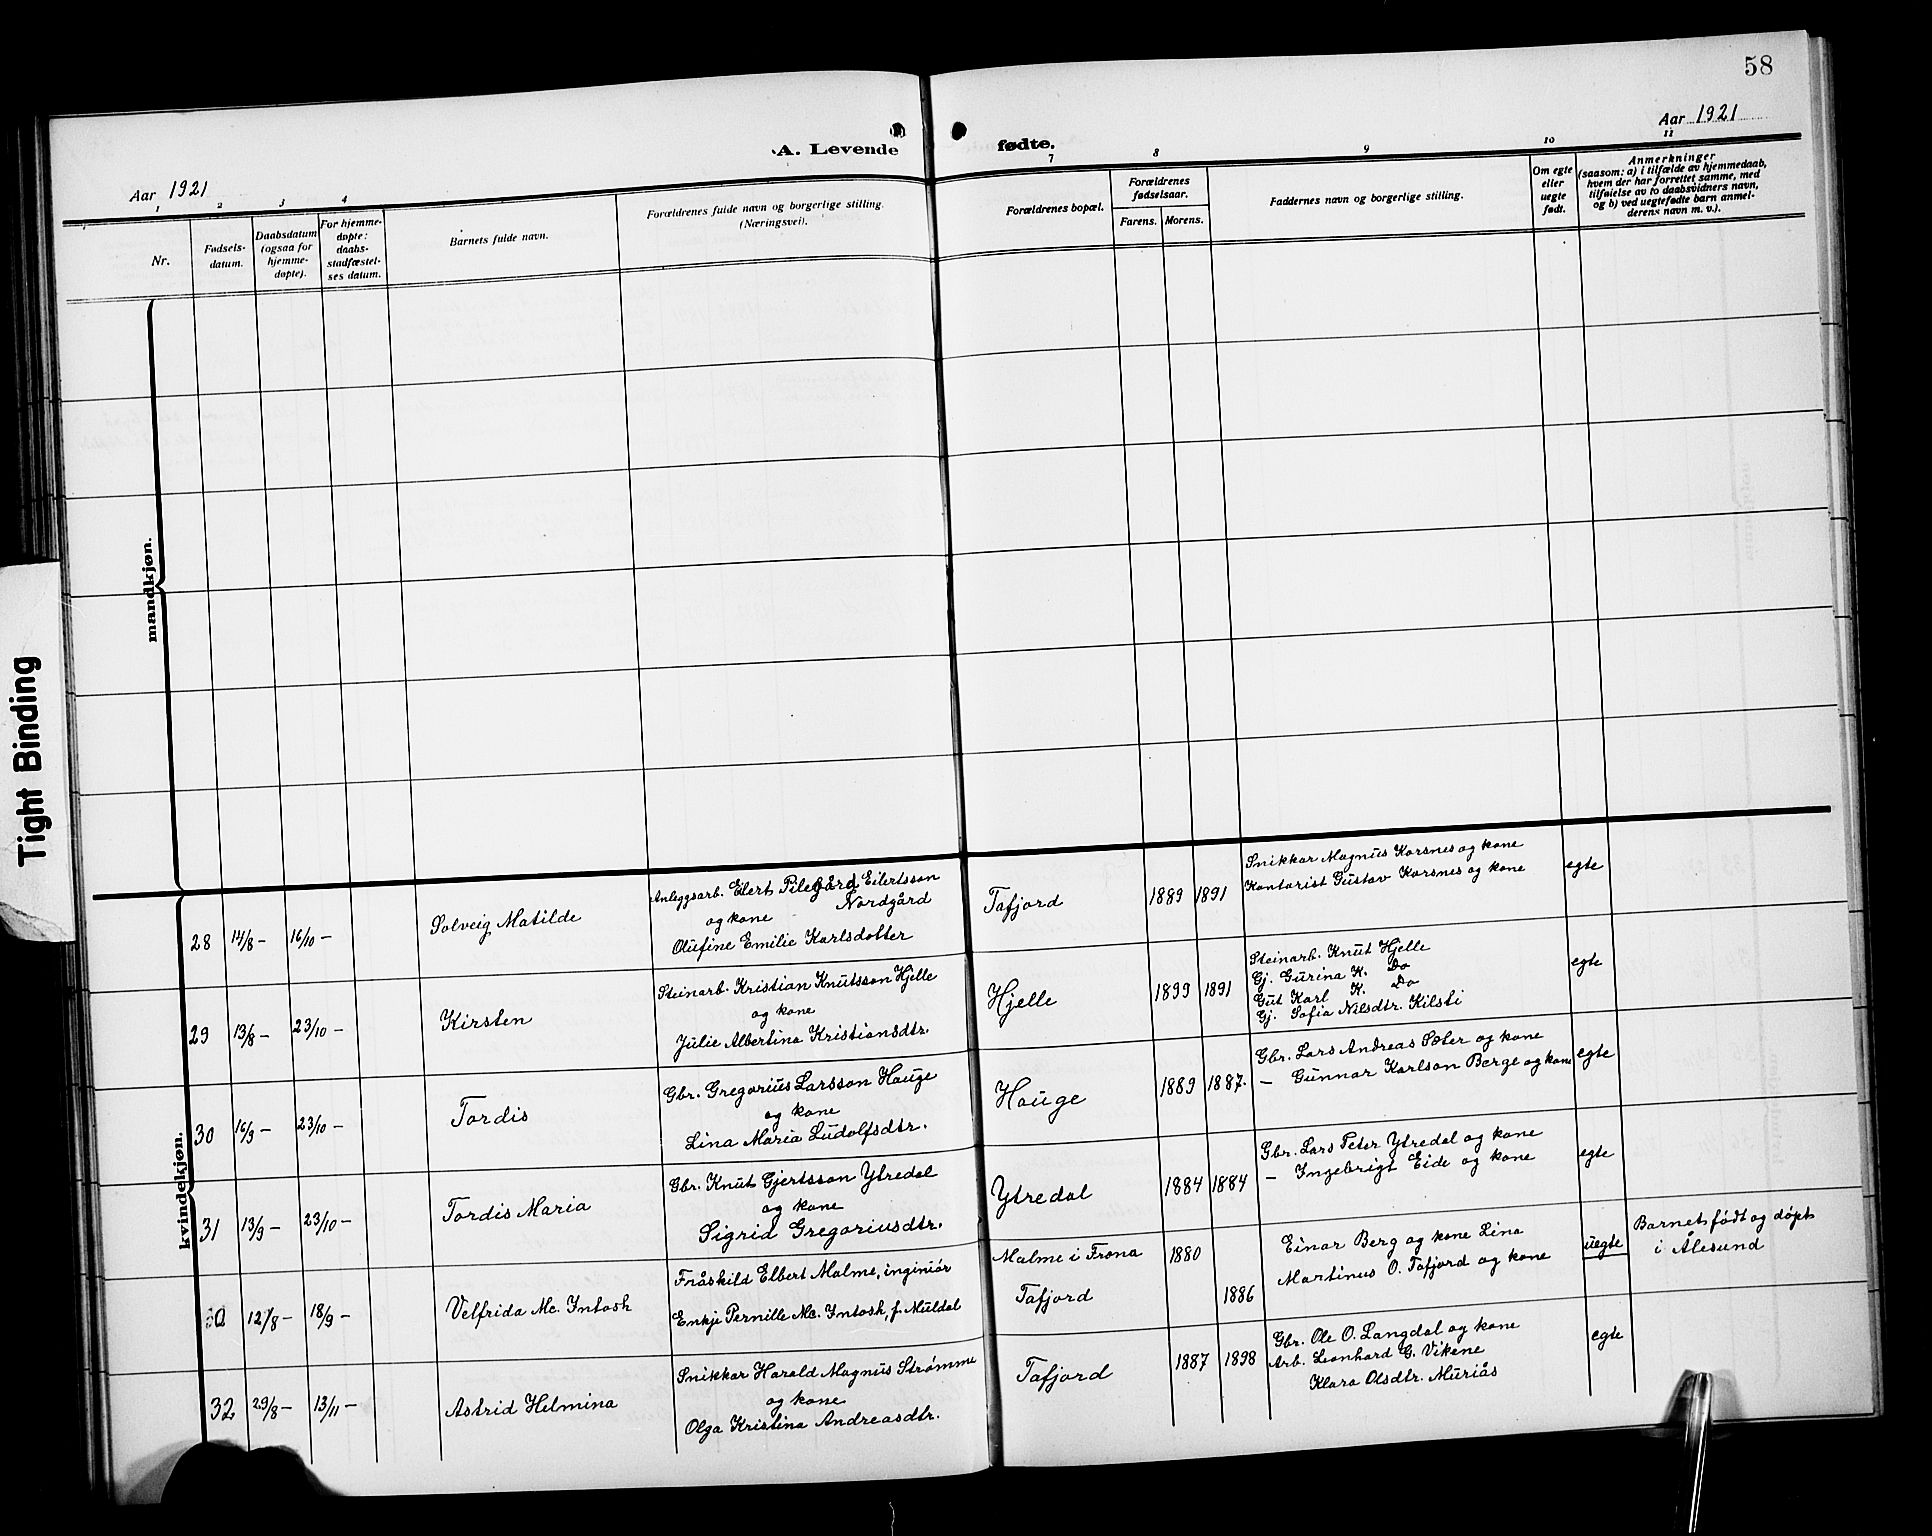 58
Aar 1921
A. Levende fødte.
Aar 1921
1 2 3 4 7 8 9 10 11
Nr.
Fødsels-
datum.
Daabsdatum
(ogsaa for
hjemme-
døpte).
For hjemme-
døpte:
daabs-
stadfæstel-
ses datum.
Barnets fulde navn.
Forældrenes fulde navn og borgerlige stilling.
(Næringsvei).
Forældrenes bopæl.
Forældrenes
fødselsaar.
Farens. Morens.
Faddernes navn og borgerlige stilling.
Om egte
eller
uegte
født.
Anmerkninger
(saasom: a) i tilfælde av hjemmedaab,
hvem der har forrettet samme, med
tilføielse av to daabsvidners navn,
og b) ved uegtefødte barn anmel-
derens navn m. v.).
mandkjøn.
kvindekjøn.
Tight Binding
28 14/8 – 16/10 – Solveig Matilde
Anleggsarb. Eilert Pilegård Eilertsson
Nordgård
og kone
Olufine Emilie Karlsdotter
Tafjord 1889 1891
Snikkar Magnus Korsnes og kone
Kontorist Gustav Korsnes og kone
egte
29 13/8 – 23/10 – Kirsten
Steinarb. Kristian Knutsson Hjelle
og kone
Julie Albertina Kristiansdtr.
Hjelle 1899 1891
Steinarb. Knut Hjelle
Gj. Gurina K. Do
Gut Karl K. Do
Gj. Sofia Nilsdtr. Kilsti
egte
30 16/9 – 23/10 – Tordis
Gbr. Gregorius Larsson Hauge
og kone
Lina Maria Ludolfsdtr.
Hauge 1889 1887.
Gbr. Lars Andreas Sæter og kone
– Gunnar Karlson Berge og kone
egte
31 13/9 – 23/10 – Tordis Maria
Gbr. Knut Gjertsson Ytredal
og kone
Sigrid Gregoriusdtr.
Ytredal 1884 1884
Gbr. Lars Peter Ytredal og kone
– Ingebrigt Eide og kone
egte
12/8 – 18/9 – Velfrida Mc. Intosh
Fråskild Elbert Malme, inginiör
Enkje Pernille Mc. Intosh, f. Muldal
Malme i Frona 1880
Tafjord 1886
Einar Berg og kone Lina
Martinus O. Tafjord og kone
uegte
Barnet født og døpt
i Ålesund
32 29/8 – 13/11 – Astrid Helmina
Snikkar Harald Magnus Strømme
og kone
Olga Kristina Andreasdtr.
Tafjord 1887 1898
Gbr. Ole O. Langdal og kone
Arb. Leonhard G. Vikene
Klara Olsdtr. Muriås
egte